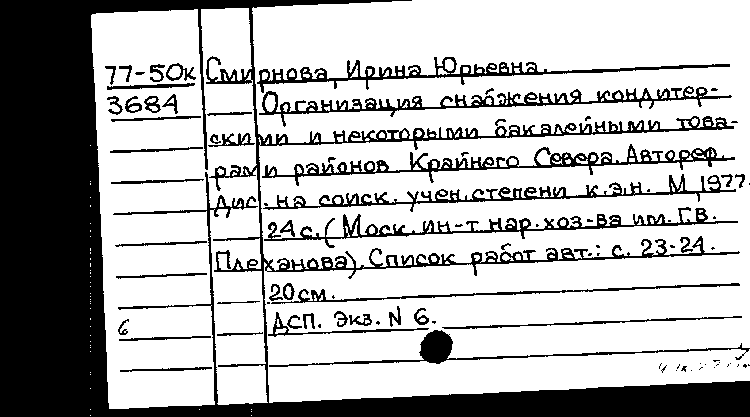 77-50к Смирнова, Ирина Юрьевна.
3684 Организация снабжения кондитер-
скими и некоторыми бакалейными това-
рами районов Крайнего Севера. Автореф.
дис. на соиск. учен. степени к.э.н. М., 1977.
24 с. (Моск. ин-т нар. хоз-ва им. Г.В.
Плеханова). Список работ авт.: с. 23-24.
20 см.
6 ДСП. Экз. N 6.